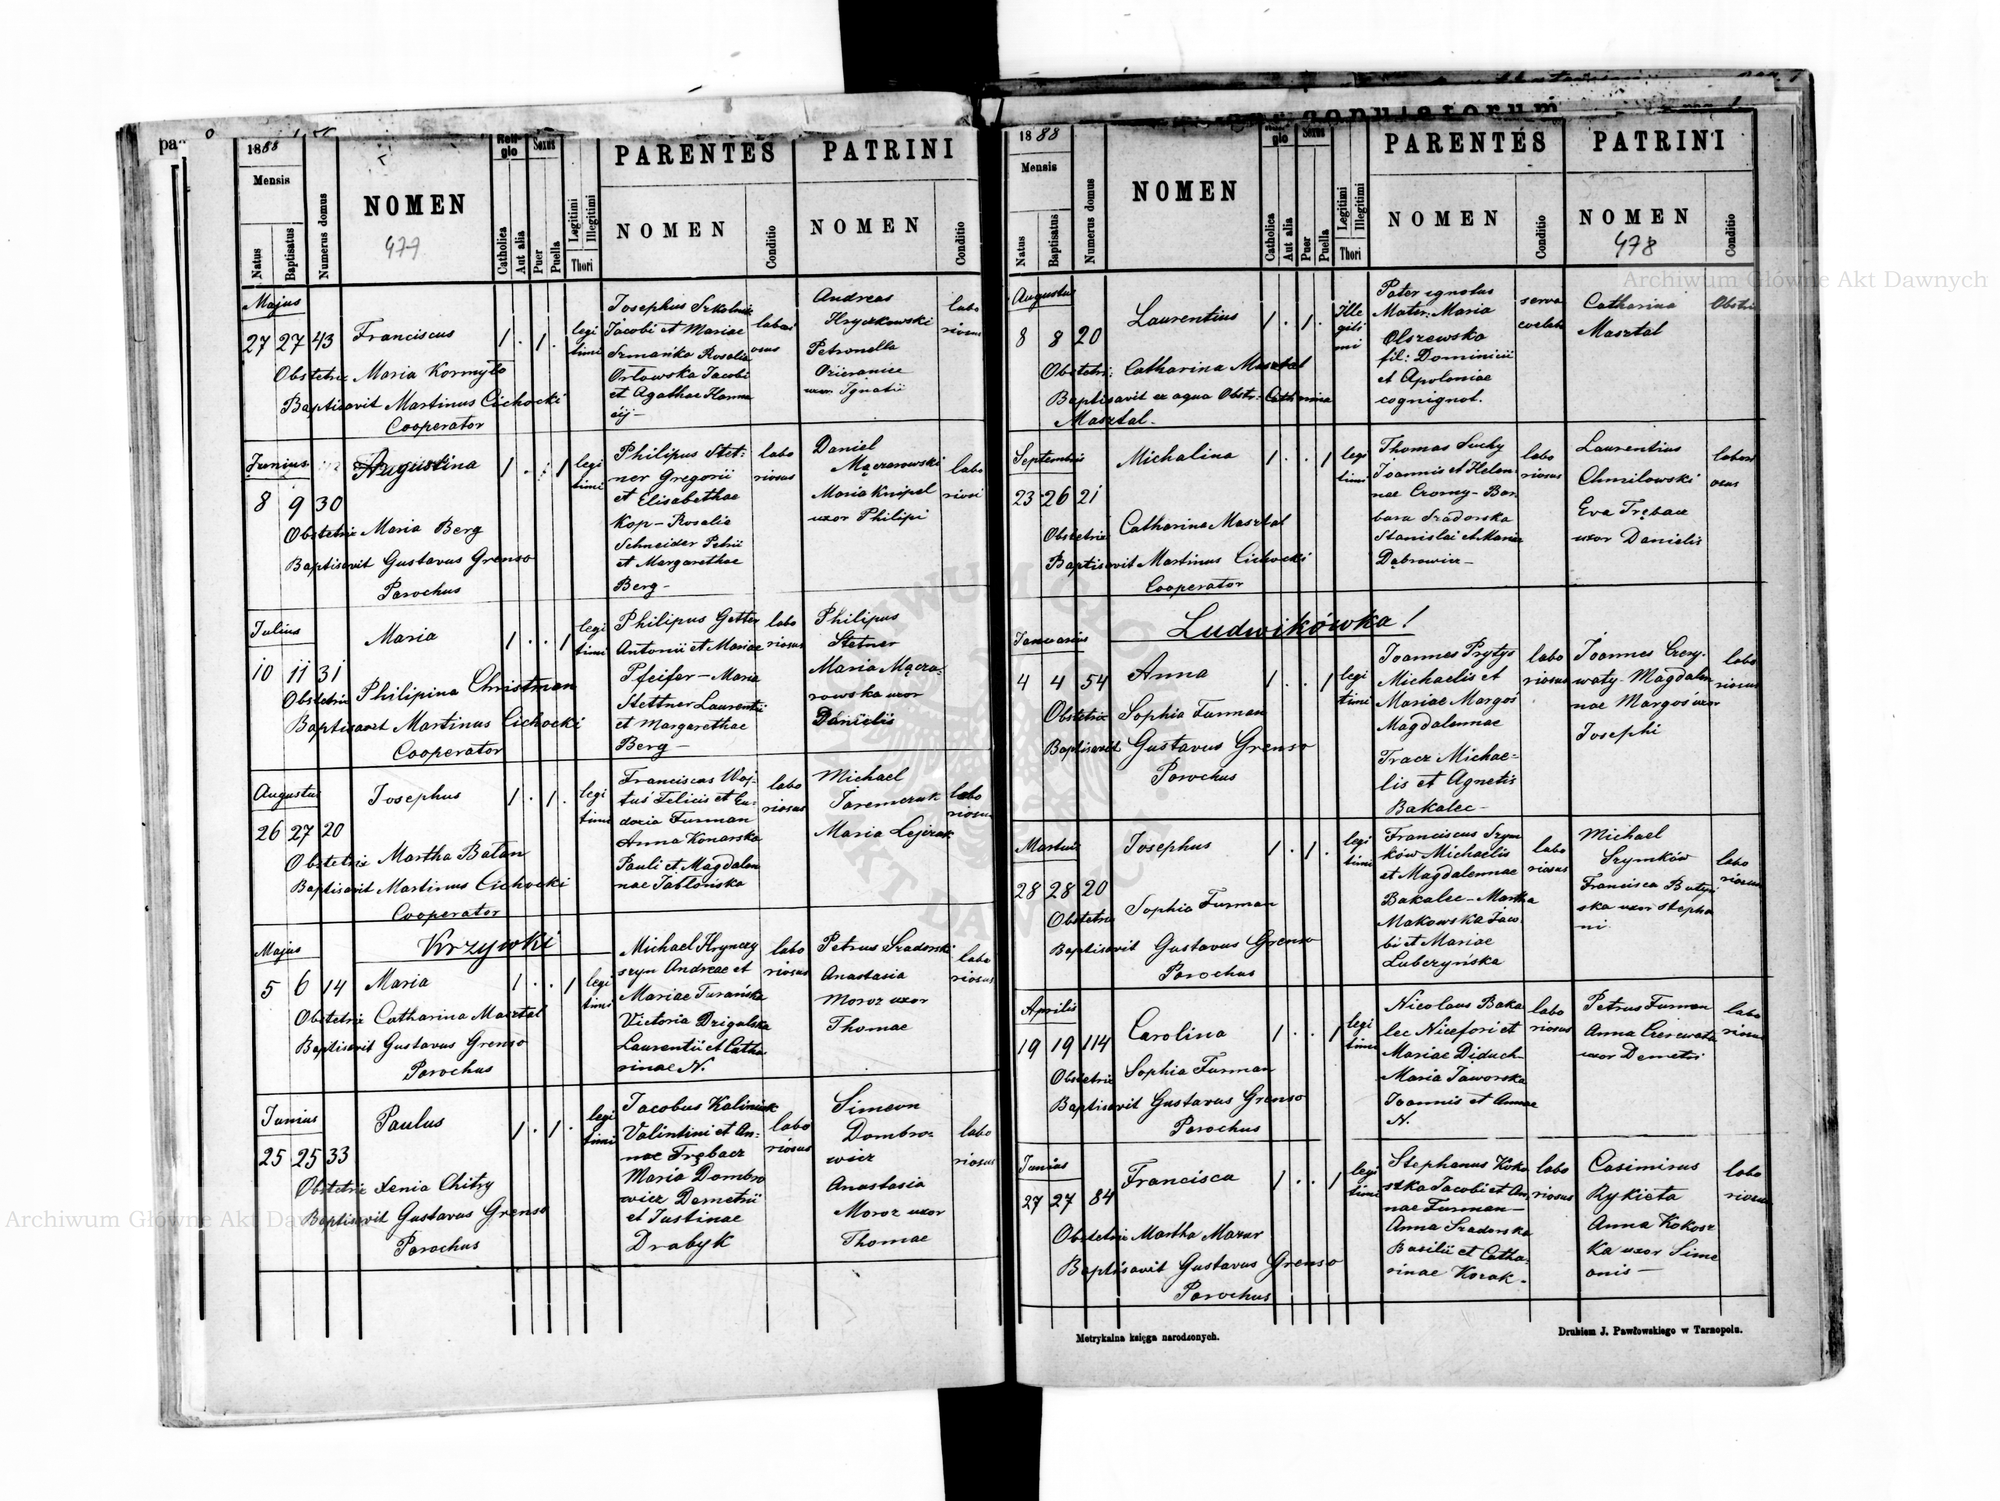 1888
Mensis
Natus
Baptisatus
Numerus domus
NOMEN
477
Religio
Catholica
Aut alia
Sexus
Puer
Puella
Legitimi
Illegitimi
Thori
PARENTES
NOMEN
Conditio
PATRINI
NOMEN
Conditio
Majus
27 27 43 Franciscus 1 . 1 . legi
timi
Obstetrix Maria Kormyło
Baptisavit Martinus Cichocki
Cooperator
Josephus
Jacobi et Mariae
Szmańka Rosalia
Orłowska Jacobi
et Agathae
Andreas
Hryczkowski
Petronella
uxor Ignatii
labo
riosus
Junius
8 9 30 Augustina 1 . . 1 legi
timi
Obstetrix Maria Berg
Baptisavit Gustavus Grenso
Parochus
Philipus Stet-
ner Gregorii
et Elisabethae
Kop - Rosalie
Schneider Petrii
et Margarethae
Berg -
labo
riosus
Daniel
Mączarowski
Maria Knipel
uxor Philipi
labo
riosi
Julius
10 11 31 Maria 1 . . 1 legi
timi
Obstetrix Philipina Christman
Baptisavit Martinus Cichocki
Cooperator
Philipus Getter
Antonii et Mariae
Pfeifer - Maria
Stettner Laurentii
et Margarethae
Berg -
labo
riosus
Philipus
Stetner
Maria Mącza-
rowska uxor
Danielis
Augustus
26 27 20 Josephus 1 . 1 . legi
timi
Obstetrix Martha Batan
Baptisavit Martinus Cichocki
Cooperator
Franciscus Woj-
tuś Felicis et Eu-
doxia Furman
Anna Konarska
Pauli et Magdalen
nae Jabłońska
labo
riosus
Michael
Jaremczuk
Maria
labo
riosus
Krzywki
Majus
5 6 14 Maria 1 . . 1 legi
timi
Obstetrix Catharina Masztal
Baptisavit Gustavus Grenso
Parochus
Michael Hrynczy
szyn Andreae et
Mariae Turańska
Victoria Drigalska
Laurentii et Catha
rinae N.
labo
riosus
Petrus Szadorski
Anastasia
Moroz uxor
Thomae
labo
riosus
Junius
25 25 33 Paulus 1 . 1 . legi
timi
Obstetrix Xenia Chitry
Baptisavit Gustavus Grenso
Parochus
Jacobus Kaliniuk
Valintini et An-
nae Trębacz
Maria Dombro
wicz Demetrii
et Justinae
Drabyk
labo
riosus
Simeon
Dombro-
wicz
Anastasia
Moroz uxor
Thomae
labo
riosus
1888
Mensis
Natus
Baptisatus
Numerus domus
NOMEN
Catholica
Aut alia
Sexus
Puer
Puella
Legitimi
Illegitimi
Thori
PARENTES
NOMEN
Conditio
PATRINI
NOMEN
478
Conditio
Augustus
8 8 20 Laurentius 1 . 1 . Ille
giti
mi
Obstetrix Catharina Masztal
Baptisavit ex aqua Obstr: Catharina
Masztal.
Pater ignotus
Mater: Maria
Olszewska
fil: Dominicii
et Apoloniae
cognignot.
serva
coelebs
Catharina
Masztal
Obstetrix
Septembris
23 26 21 Michalina 1 . . 1 legi
timi
Obstetrix Catharina Masztal
Baptisavit Martinus Cichocki
Cooperator
Thomas Suchy
Joannis et Helen
nae Czorny - Bar
bara Szadorska
Stanislai et Mariae
Dąbrowicz -
labo
riosus
Laurentius
Chmilowski
Eva Trębacz
uxor Danielis
labori
osus
Ludwikówka!
Januarius
4 4 54 Anna 1 . . 1 legi
timi
Obstetrix Sophia Furman
Baptisavit Gustavus Grenso
Parochus
Joannes Prytys
Michaelis et
Mariae Margoś
Magdalennae
Tracz Michae-
lis et Agnetis
Bakalec -
labo
riosus
Joannes Czer-
waty - Magdalen
nae Margoś uxor
Josephi
labo
riosus
Martius
28 28 20 Josephus 1 . 1 . legi
timi
Obstetrix Sophia Furman
Baptisavit Gustavus Grenso
Parochus
Franciscus Szym
ków Michaelis
et Magdalennae
Bakalec - Martha
Makowska Jaco
bi et Mariae
Lubczyńska
labo
riosus
Michael
Szymków
Francisca Batyń
ska uxor Stepha
ni
labo
riosus
Aprilis
19 19 114 Carolina 1 . . 1 legi
timi
Obstetrix Sophia Furman
Baptisavit Gustavus Grenso
Parochus
Nicolaus Baka
lec Nicefori et
Mariae Diduch -
Maria Jaworska
Joannis et Annae
N.
labo
riosus
Petrus Furman
Anna Czerwata
uxor Demetri
labo
riosus
Junius
27 27 84 Francisca 1 . . 1 legi
timi
Obstetrix Martha Mazur
Baptisavit Gustavus Grenso
Parochus
Stephanus Koko
szka Jacobi et An
nae Furman -
Anna Szadorska
Basilii et Catha-
rinae Kozak -
labo
riosus
Casimirus
Rykieta
Anna Kokosz
ka uxor Sime
onis -
labo
riosus
Metrykalna księga narodzonych.
Drukiem J. Pawłowskiego w Tarnopolu.
Archiwum Główne Akt Dawnych
Archiwum Główne Akt Dawnych